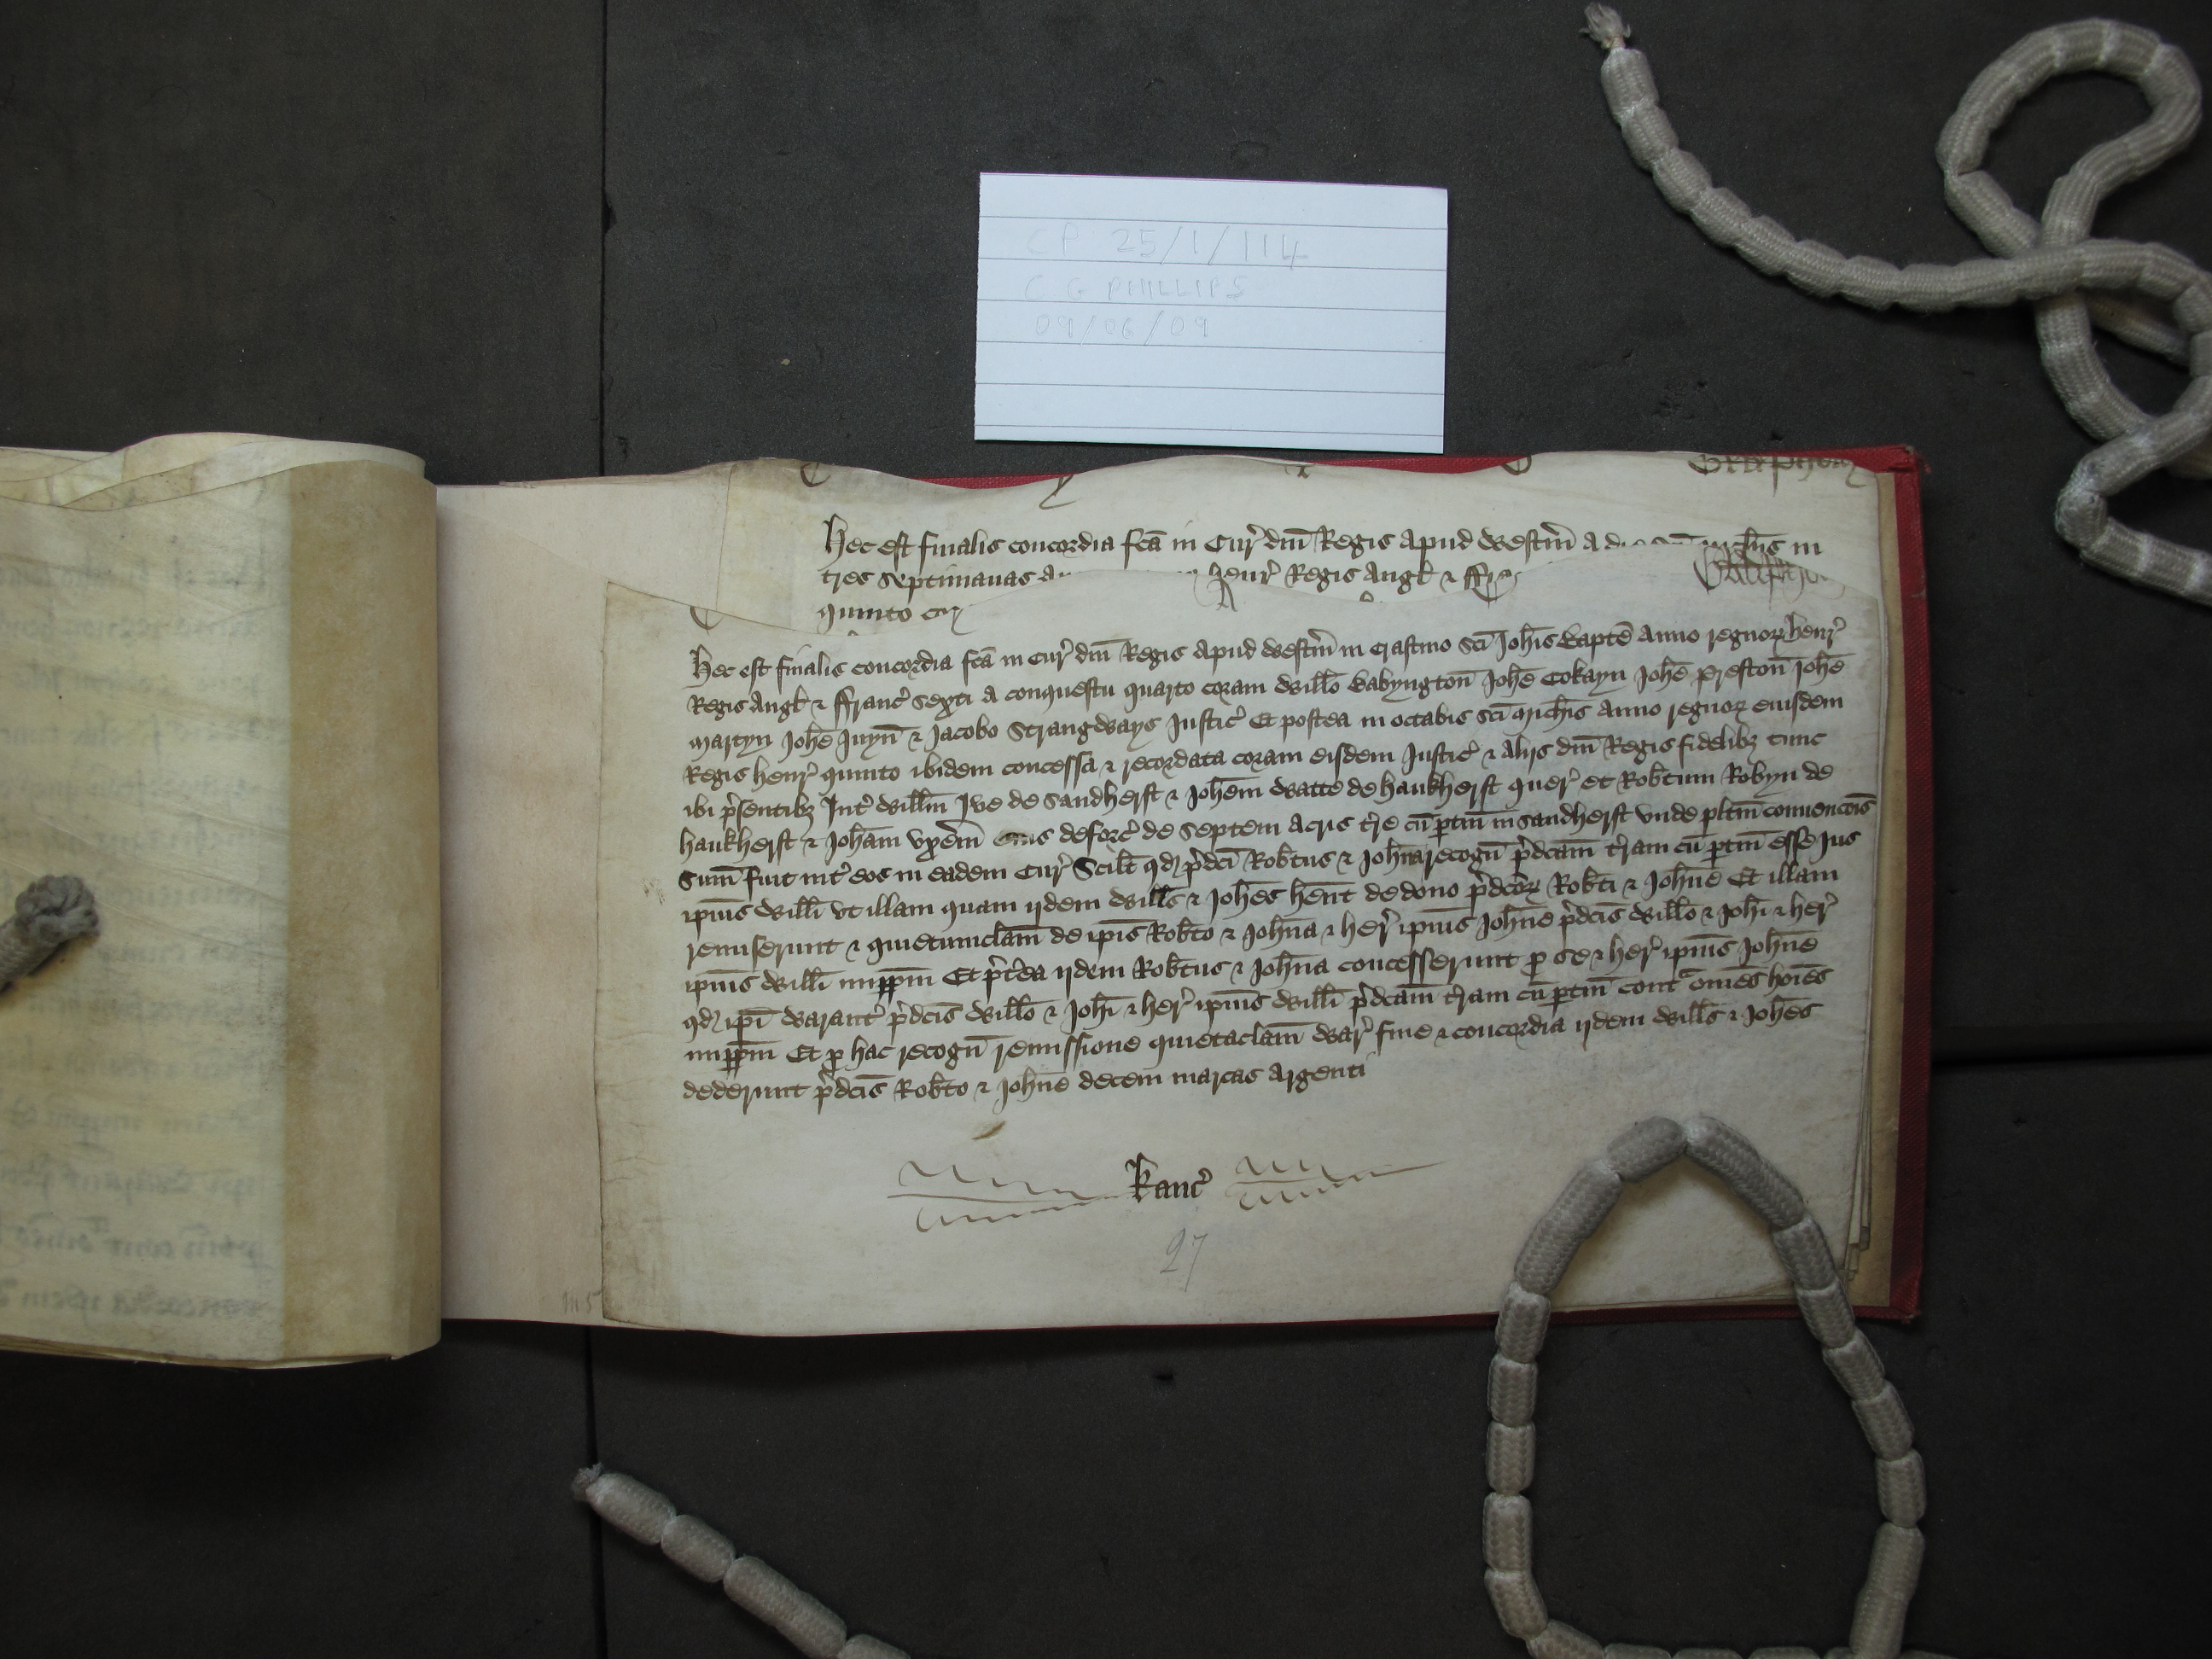 CP 25/1/114
C G PHILLIPS
09/06/09
Hec est finalis concordia fcā in Cur̉ dn̄i Regis apud Westm̄ a die in
tres septimanas Henr̉ Regis Angl̉ & ffr
quinto
Hec est finalis concordia fcā in Cur̉ dn̄i Regis apud Westm̄ in crastino Sc̄i Joh̄is Bapte̅ anno regnoꝝ Henr̉
Regis Angl̉ & ffranc̉ sexti a conquestu quarto coram Will̄o Babyngton̄ Joh̄e Cokayn Joh̄e Preston̄ Joh̄e
Martyn Joh̄e Juyn̄ & Jacobo Strangways Justic̉ Et postea in octabis Sc̄i Mich̄is anno regnoꝝ eiusdem
Regis Henr̉ quinto ibidem concessa & recordata coram eisdem Justic̉ & alijs dn̄i Regis fidelibꝫ tunc
ibi p̉sentibꝫ Int̉ Will̄m Ive de Sandherst & Joh̄em Watte de Haukherst quer̉ et Rob̄tum Robyn de
Haukherst & Joh̄am vx̄em eius deforc̉ de septem acris t̉re cū ꝑtin̄ in Sandherst vnde pl̄itm̄ conuenc̄ois
sum̄ fuit int̉ eos in eadem Cur̉ Scil̄t qd̉ p̉dc̄i Rob̄tus & Joh̄na recogn̄ p̉dc̄am t̉ram cū ꝑtin̄ esse Jus
ip̄ius Will̄i vt illam quam ijdem Will̄s & Joh̄es h̄ent de dono p̉dc̄oꝝ Rob̄ti & Joh̄ne Et illam
remiserunt & quietumclam̄ de ip̄is Rob̄to & Joh̄na & her̉ ip̄ius Joh̄ne p̉dc̄is Will̄o & Joh̄i & her̉
ip̄ius Will̄i imꝑꝑm̄ Et p̉t̉ea ijdem Rob̄tus & Joh̄na concesserunt ꝓ se & her̉ ip̄ius Joh̄ne
qd̉ ip̄i Warant̉ p̉dc̄is Will̄o & Joh̄i & her̉ ip̄ius Will̄i p̉dc̄am t̉ram cū ꝑtin̄ cont̉ om̄es ho̅ies
imꝑꝑm̄ Et ꝓ hac recogn̄ remissione quietaclam̄ War̉ fine & concordia ijdem Will̄s & Joh̄es
dederunt p̉dc̄is Rob̄to & Joh̄ne decem marcas argenti
Kanc̉
27
m.5